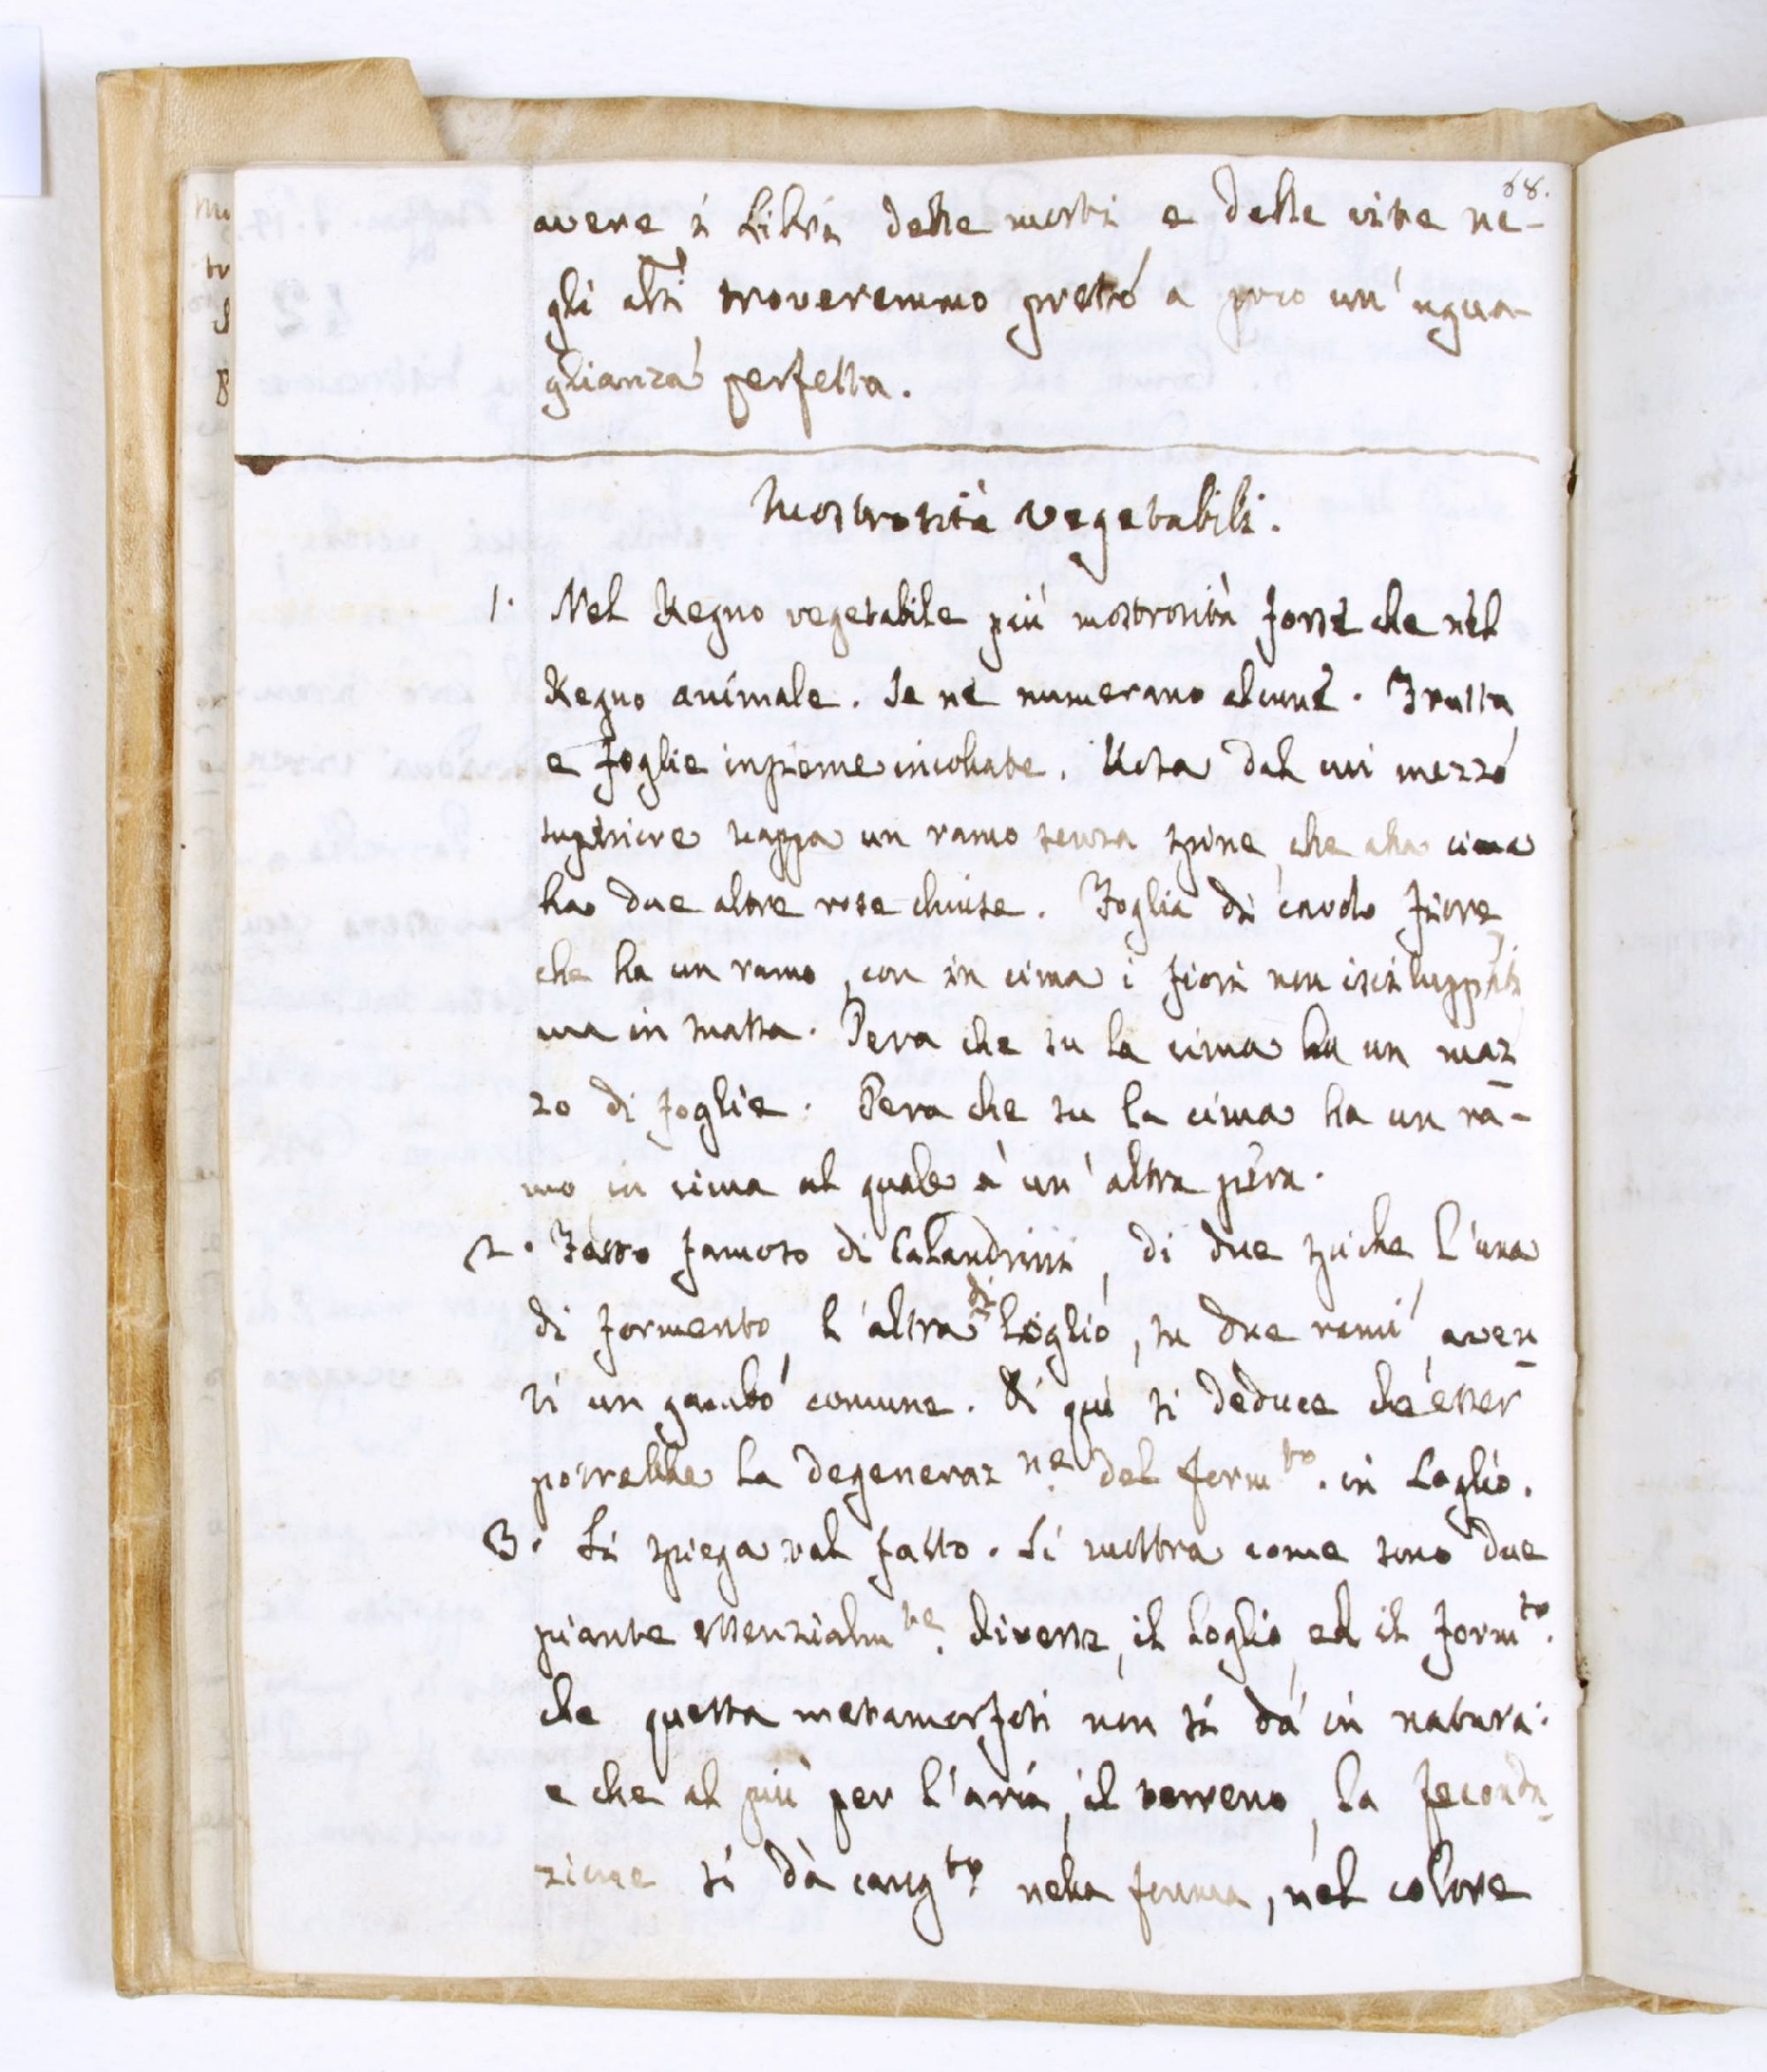 68.
avere i Libri delle morti e delle vite ne-
gli altri troveremmo presso a poco un' ugua-
glianza perfetta.
Mostrosità vegetabili.
1. Nel Regno vegetabile più mostrosità forse che nel
Regno animale. Se ne numerano alcune. Frutta
e foglie insieme incollate. Rosa dal cui mezzo
superiore scappa un ramo senza spine, che alla cima
ha due altre rose chiuse. Foglia di cavolo fiore,
che ha un ramo, con in cima i fiori non isviluppati
ma in massa. Pera che su la cima ha un maz
zo di foglie. Pera che su la cima ha un ra-
mo in cima al quale è un' altra pera.
2. Fatto famoso di Calandrini, di due spiche l'una
di formento, l'altra di Loglio, su due rami aven
ti un gambo comune. Di qui si deduce che esser
potrebbe la degeneraz.ne del form.to in Loglio.
3. Si spiega tal fatto. Si mostra come sono due
piante essenzialm.te diverse, il Loglio, ed il form.to.
che questa metamorfosi non si dà in natura:
e che al più per l'aria, il terreno, la feconda
zione si dà cang.to nella forma, nel colore